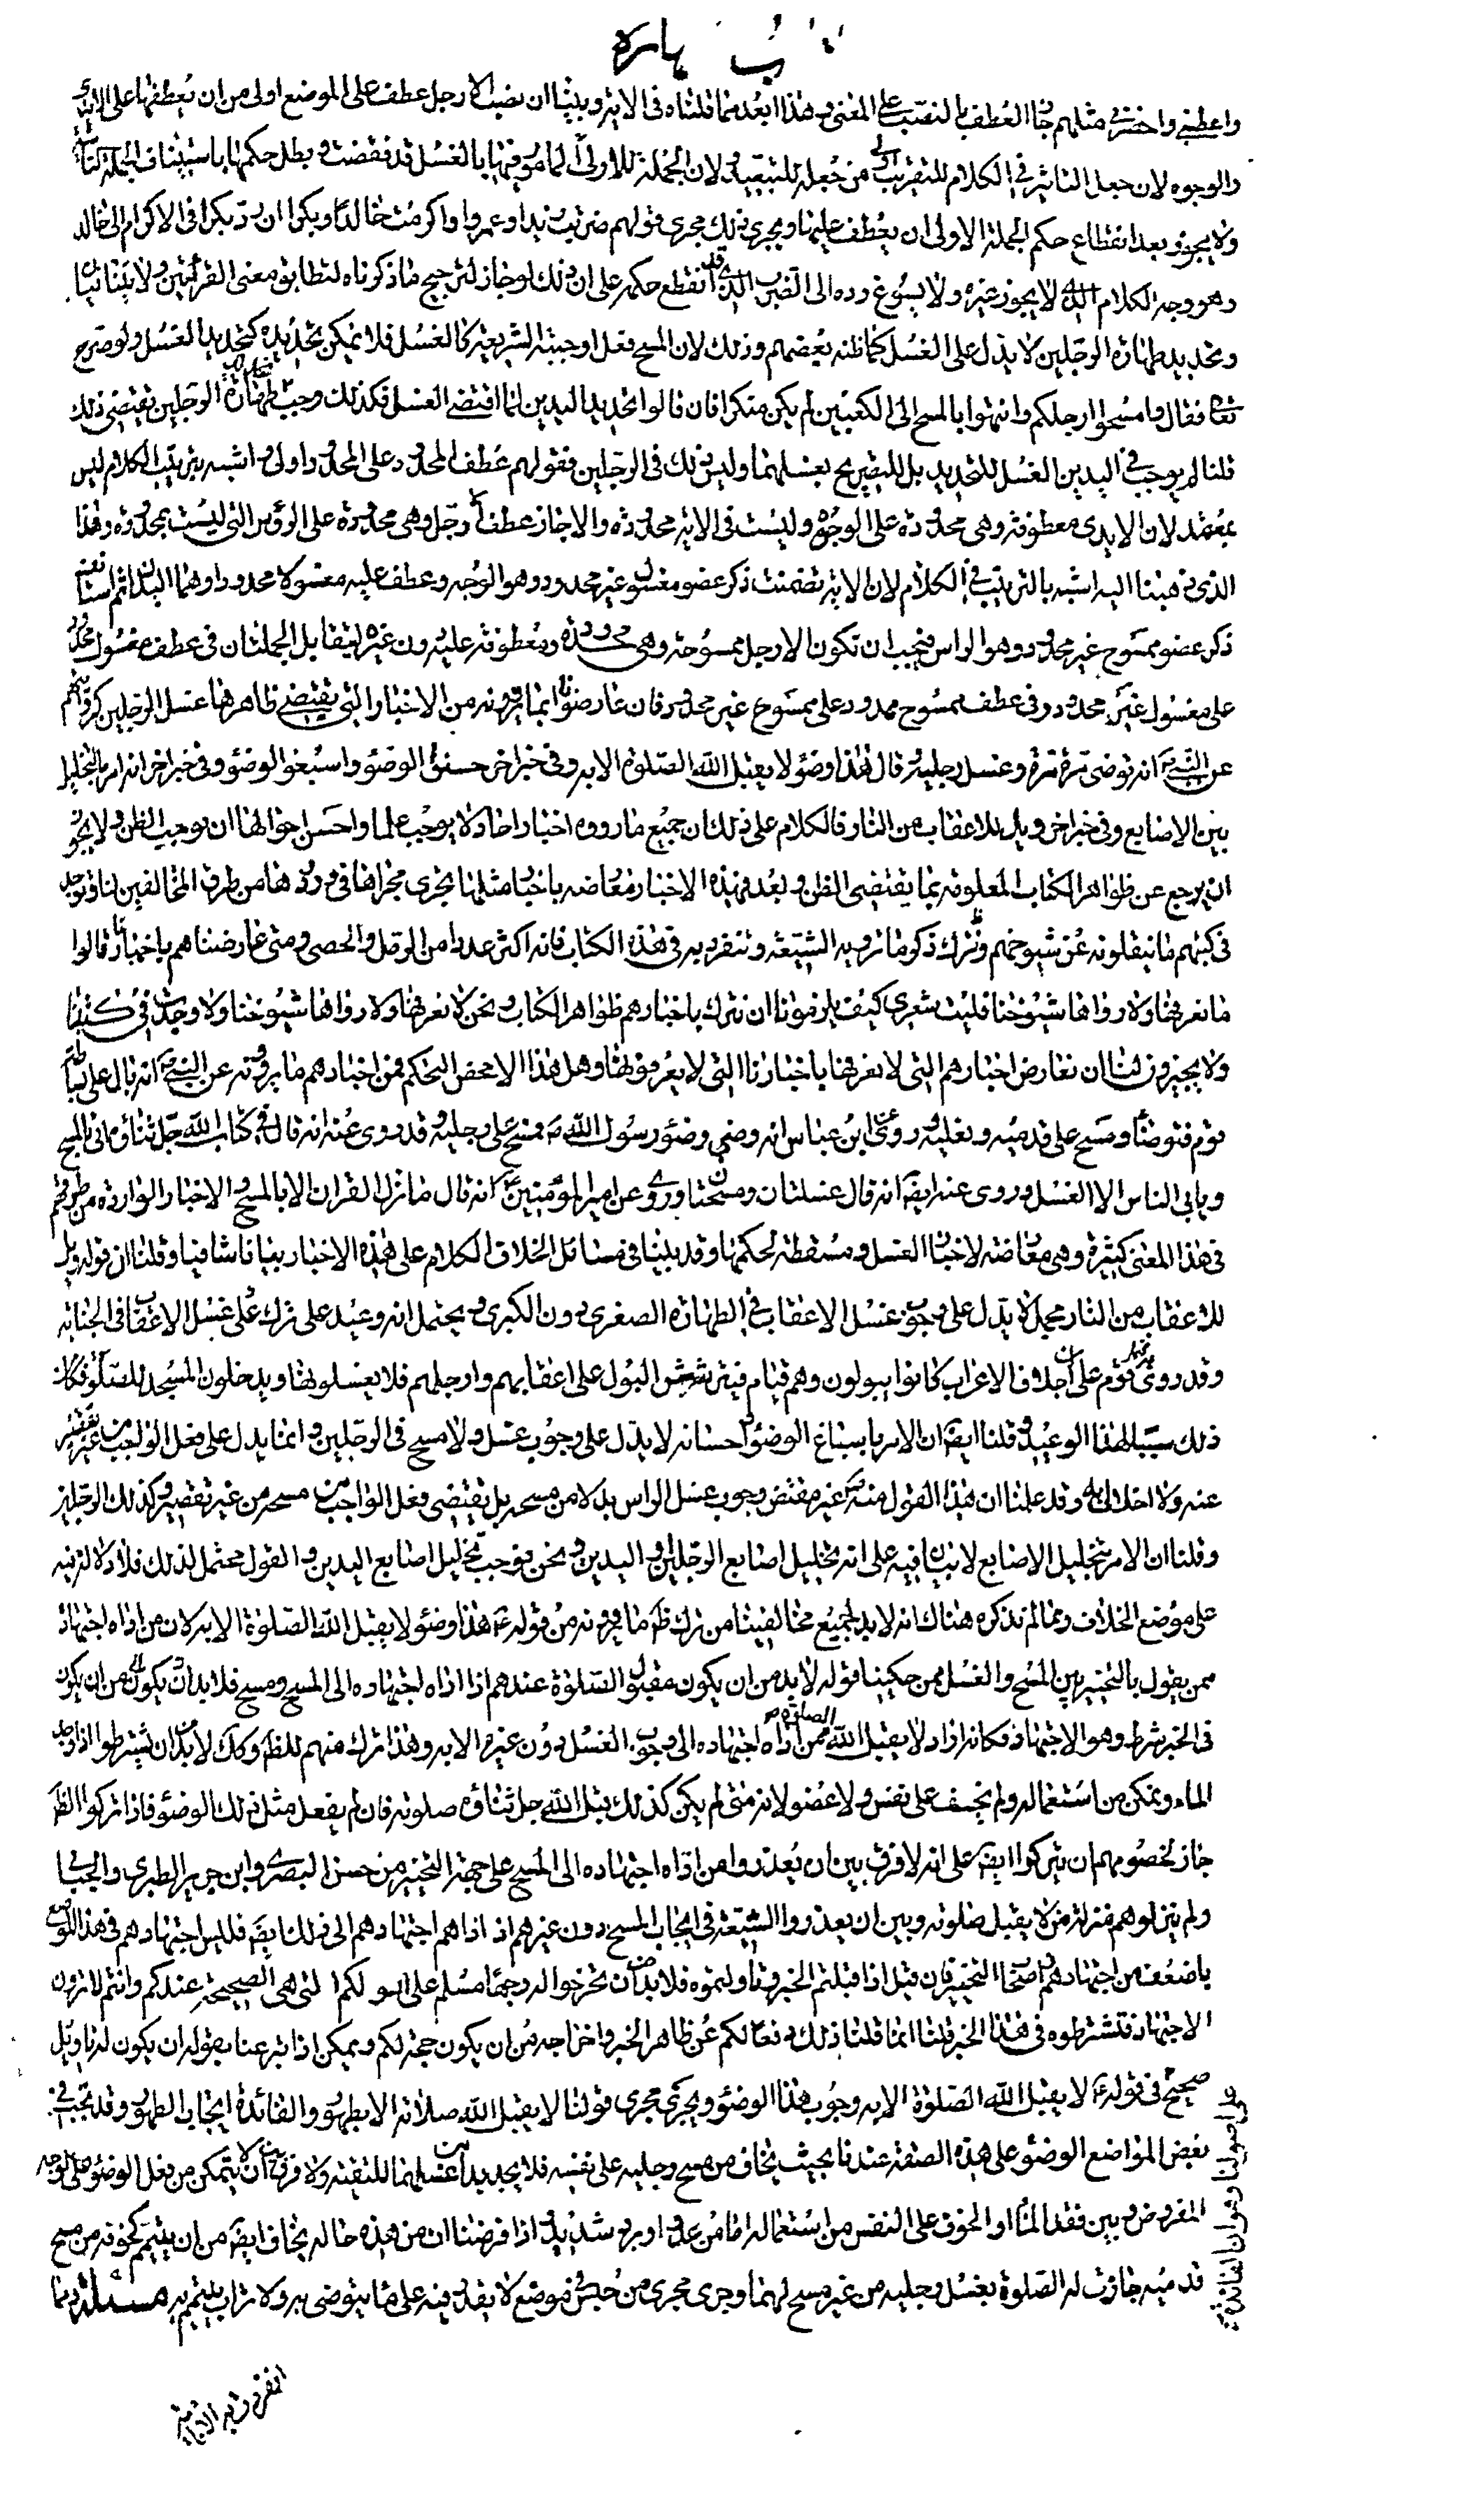 واعطني واخضرني مثلهم جاز العطف بالنصب على المعنى وهذا ابعد مما قلناه في الاية وبينا ان نصب الارجل عطف على الموضع اولى من ان نعطفها على الايدي
والوجوه لان جعل التاثير في الكلام للقريب اولى من جعله للبعيد ولان الجملة الاولى المامور فيها بالغسل قد نقضت وبطل حكمها باستيناف الجملة الثانية
ولا يجوز بعد انقطاع حكم الجملة الاولى ان يعطف عليها ويجري ذلك مجرى قولهم ضربت زيدا وعمروا واكرمت خالدا وبكرا ان رد بكرا في الاكرام الى خالد
وهو وجه الكلام الذي لا يجوز غيره ولا يسوغ رده الى الضرب الذي قد انقطع حكمه على ان ذلك لو جاز لترجح ما ذكرناه لتطابق معنى القرائتين ولا يتنافيان
وتحديد طهارة الرجلين لا يدل على الغسل كما ظنه بعضهم وذلك لان المسح فعل اوجبته الشريعة كالغسل فلا يمكن تحديده كتحديد الغسل ولو صرح
تعالى فقال وامسحوا ارجلكم وانتهوا بالمسح الى الكعبين لم يكن منكرا فان قالوا تحديد اليدين لما اقتضى الغسل فكذلك وجب تحديد طهارة الرجلين تقتضي ذلك
قلنا لم يوجب في اليدين الغسل للتحديد بل للتصريح بغسلهما وليس ذلك في الرجلين فقولهم عطف المحدود على المحدود اولى واشبه بترتيب الكلام ليس
بمعتمد لان الايدي معطوفة وهي محدودة على الوجوه وليست في الاية محدودة والا جاز عطف الارجل وهي محدودة على الرؤس التي ليست بمحدودة وهذا
الذي ذهبنا اليه اشبه بالترتيب في الكلام لان الاية تضمنت ذكر عضو مغسول غير محدود وهو الوجه وعطف عليه مغسولا محدودا وهما اليدان ثم استانف
ذكر عضو ممسوح غير محدود وهو الراس فيجب ان تكون الارجل ممسوحة وهي محدودة ومعطوفة عليه دون غيره ليتقابل الجملتان في عطف مغسول محدود
على مغسول غير محدود وفي عطف ممسوح محدود على ممسوح غير محدود فان عارضونا بما يروونه من الاخبار التي يقتضي ظاهرها غسل الرجلين كروايتهم
عن النبي انه توضى مرة مرة وغسل رجليه وقال هذا وضوء لا يقبل الله الصلوة الا به وفي خبر اخر حسنوا الوضوء واسبغوا الوضوء وفي خبر اخر انه امر بالتخليل
بين الاصابع وفي خبر اخر ويل للاعقاب من النار فالكلام على ذلك ان جميع ما رووه اخبار احاد لا يوجب علما واحسن احوالها ان يوجب الظن ولا يجوز
ان يرجع عن ظواهر الكتاب المعلومة بما يقتضي الظن وبعد فهذه الاخبار معارضة باخبار مثلها تجري مجراها في ورودها من طرق المخالفين لنا وتوجد
في كتبهم ما ينقلونه عن شيوخهم ونترك ذكر ما ترويه الشيعة وتنفرد به في هذا الكتاب فانه اكثر عددا من الرمل والحصى ومتى عارضناهم باخبارنا قالوا
ما نعرفها ولا رواها شيوخنا فليت شعري كيف يلزموننا ان نترك باخبارهم ظواهر الكتاب ونحن لا نعرفها ولا رواها شيوخنا ولا وجدت في كتبنا
ولا يجيزون لنا ان نعارض اخبارهم التي لا نعرفها باخبارنا التي لا يعرفونها وهل هذا الا محض التحكم فمن اخبارهم ما يروونه عن النبي انه بال على سباطة
قوم فتوضا ومسح على قدميه ونعليه وروي عن ابن عباس انه وصف وضوء رسول الله فمسح على رجليه وقد روي عنه انه قال في كتاب الله جل ثناؤه اتى بالمسح
ويابى الناس الا الغسل وروى عنه ايضا انه قال غسلتان ومسحتان وروي عن امير المؤمنين انه قال ما نزل القران الا بالمسح والاخبار الواردة من طرقهم
في هذا المعنى كثيرة وهي معارضة لاخبار الغسل ومسقطة لحكمها وقد بينا في مسائل الخلاف الكلام على هذه الاخبار بيانا شافيا وقلنا ان قوله ويل
للاعقاب من النار مجمل لا يدل على وجوب غسل الاعقاب في الطهارة الصغرى دون الكبرى ويحتمل انه وعيد على ترك غسل الاعقاب في الجنابة
وقد روى قوم ان اجلاف الاعراب كانوا يبولون وهم قيام فيترشش البول على اعقابهم وارجلهم فلا يغسلونها ويدخلون المسجد للصلوة فكان
ذلك سببا لهذا الوعيد وقلنا ايضا ان الامر باسباغ الوضوء واحسانه لا يدل على وجوب غسل ولا مسح في الرجلين وانما يدل على فعل الواجب من غير تقصير
عنه ولا اخلال به وقد علمنا ان هذا القول منه غير مقتض وجوب غسل الراس بدلا من مسحه بل يقتضي فعل الواجب من مسحه من غير تقصير وكذلك الرجلين
وقلنا ان الامر بتخليل الاصابع لا بيان فيه على انه تخليل اصابع الرجلين او اليدين ونحن نوجب تخليل اصابع اليدين والقول محتمل لذلك فلا دلالة فيه
على موضع الخلاف ومما لم نذكره هناك انه لا بد لجميع مخالفينا من ترك ظاهر ما يروونه من قوله هذا وضوء لا يقبل الله الصلوة الا به لان من اداه اجتهاده
ممن يقول بالتخيير بين المسح والغسل ممن حكينا قوله لا بد من ان يكون مقبول الصلوة عندهم اذا اداه اجتهاده الى المسح ومسح فلا بد من ان يكون
في الخبر شرط وهو الاجتهاد فكانه اراد لا يقبل الله الصلوة ممن اداه اجتهاده الى وجوب الغسل دون غيره الا به وهذا ترك منهم للظاهر وكذلك لا بد ان يشترطوا اذا وجد
الماء وتمكن من استعماله ولم يخف على نفس ولا عضو لانه متى لم يكن كذلك قبل الله جل ثناؤه صلوته فان لم يفعل مثل ذلك الوضوء فاذا تركوا الظاهر
جاز لخصومهم ان يتركوا ايضا على انه لا فرق بين ان يعذروا من اداه اجتهاده الى المسح على جهة التخيير من حسن البصري وابن جرير الطبري والجبائي
ولم ينزلوهم منزلة من لا يقبل صلوته وبين ان يعذروا الشيعة في ايجاب المسح دون غيره اذ اداهم اجتهادهم الى ذلك ايضا فليس اجتهادهم في هذا الموضع
باضعف من اجتهاد اصحاب التخيير فان قيل اذا قبلتم الخبر وتاولتموه فلا بد من ان تخرجوا له وجها مسلم على اصولكم التي هي الصحيحة عندكم وانتم لا ترون
الاجتهاد فتشترطوه في هذا الخبر قلنا انما قلنا ذلك دفعا لكم عن ظاهر الخبر واخراجه من ان يكون حجة لكم ويمكن اذا تبرعنا بقوله ان يكون له تاويل
صحيح في قوله لا يقبل الله الصلوة الا به وجوب هذا الوضوء ويجري مجرى قولنا لا يقبل الله صلاته الا بطهور والفائدة ايجاب الطهور وقد يجب في
بعض المواضع الوضوء على هذه الصفة عندنا بحيث يخاف من مسح رجليه على نفسه فلا يجد بدا من غسلهما للتقية ولا فرق بين ان لا يتمكن من فعل الوضوء على الوجه
المفروض وبين فقد الماء او الخوف على النفس من استعماله اما من عدو او برد شديد اذا فرضنا ان من هذه حاله يخاف ايضا من ان يتيمم كخوفه من مسح
قدميه جازت له الصلوة بغسل رجليه من غير مسح لهما وجرى مجرى من حبس في موضع لا يقدر فيه على ما يتوضى به ولا تراب يتيمم به مسئلة ومما
انفردت به الامامية